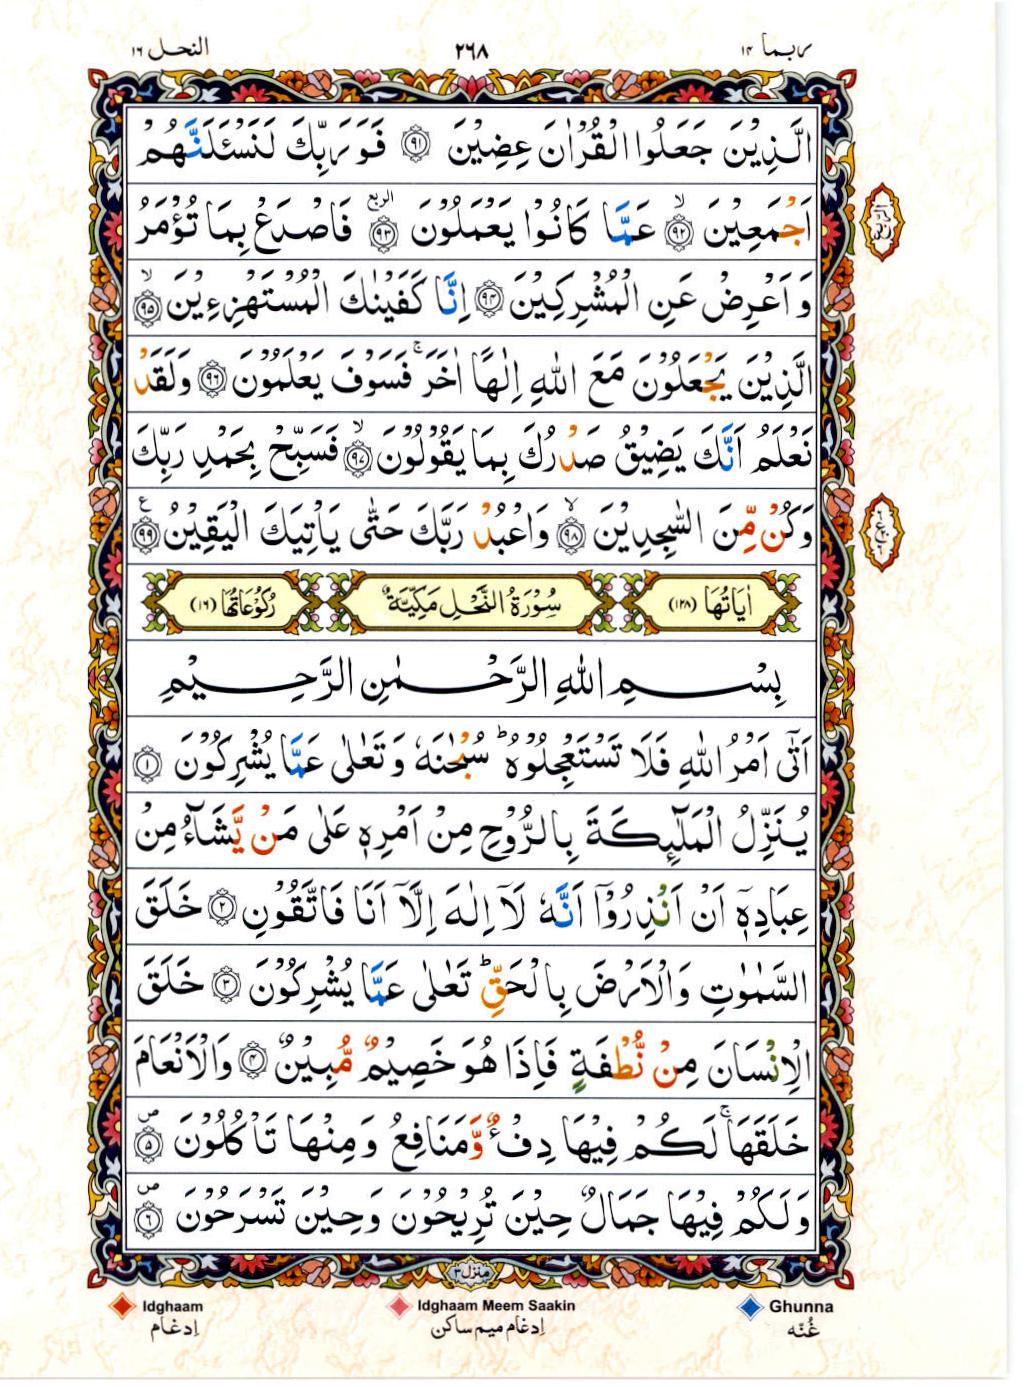 ربما ١٤ ٢٦٨ النحل ١٦
الَّذِيْنَ جَعَلُوا الْقُرْاٰنَ عِضِيْنَ ﴿٩١﴾ فَوَرَبِّكَ لَنَسْـَٔلَنَّهُمْ
اَجْمَعِيْنَ ۙ﴿٩٢﴾ عَمَّا كَانُوْا يَعْمَلُوْنَ ﴿٩٣﴾ الربع فَاصْدَعْ بِمَا تُؤْمَرُ
وَاَعْرِضْ عَنِ الْمُشْرِكِيْنَ ﴿٩٤﴾ اِنَّا كَفَيْنٰكَ الْمُسْتَهْزِءِيْنَ ۙ﴿٩٥﴾
الَّذِيْنَ يَجْعَلُوْنَ مَعَ اللّٰهِ اِلٰهًا اٰخَرَ ۚ فَسَوْفَ يَعْلَمُوْنَ ﴿٩٦﴾ وَلَقَدْ
نَعْلَمُ اَنَّكَ يَضِيْقُ صَدْرُكَ بِمَا يَقُوْلُوْنَ ۙ﴿٩٧﴾ فَسَبِّحْ بِحَمْدِ رَبِّكَ
وَكُنْ مِّنَ السّٰجِدِيْنَ ۙ﴿٩٨﴾ وَاعْبُدْ رَبَّكَ حَتّٰى يَاْتِيَكَ الْيَقِيْنُ ﴿٩٩﴾ ع
اٰيَاتُهَا (١٢٨) سُوْرَةُ النَّحْلِ مَكِّيَّةٌ رُكُوْعَاتُهَا (١٦)
بِسْمِ اللّٰهِ الرَّحْمٰنِ الرَّحِيْمِ
اَتٰٓى اَمْرُ اللّٰهِ فَلَا تَسْتَعْجِلُوْهُ ؕ سُبْحٰنَهٗ وَتَعٰلٰى عَمَّا يُشْرِكُوْنَ ﴿١﴾
يُنَزِّلُ الْمَلٰٓئِكَةَ بِالرُّوْحِ مِنْ اَمْرِهٖ عَلٰى مَنْ يَّشَآءُ مِنْ
عِبَادِهٖٓ اَنْ اَنْذِرُوْٓا اَنَّهٗ لَآ اِلٰهَ اِلَّآ اَنَا فَاتَّقُوْنِ ﴿٢﴾ خَلَقَ
السَّمٰوٰتِ وَالْاَرْضَ بِالْحَقِّ ؕ تَعٰلٰى عَمَّا يُشْرِكُوْنَ ﴿٣﴾ خَلَقَ
الْاِنْسَانَ مِنْ نُّطْفَةٍ فَاِذَا هُوَ خَصِيْمٌ مُّبِيْنٌ ﴿٤﴾ وَالْاَنْعَامَ
خَلَقَهَا ۚ لَكُمْ فِيْهَا دِفْءٌ وَّمَنَافِعُ وَمِنْهَا تَاْكُلُوْنَ ۪﴿٥﴾
وَلَكُمْ فِيْهَا جَمَالٌ حِيْنَ تُرِيْحُوْنَ وَحِيْنَ تَسْرَحُوْنَ ۪﴿٦﴾
منزل ٣
Idghaam Idghaam Meem Saakin Ghunna
اِدغام اِدغام میم ساکن غُنّه